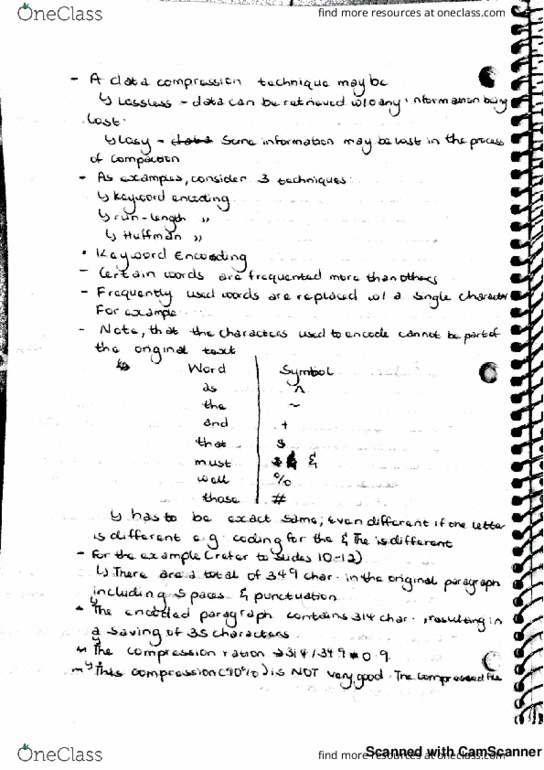 OneClass
find more resources at oneclass.com
- A data compression technique may be
↳ Lossless - data can be retrieved w/o any information being
lost.
↳ Lossy - data some information may be lost in the process
of compaction
- As examples, consider 3 techniques:
↳ Keyword encoding
↳ run-length "
↳ Huffman "
• Keyword Encoding
- Certain words are frequented more than others
- Frequently used words are replaced w/ a single character
For example
- Note, that the characters used to encode cannot be part of
the original text
Word | Symbol
as | ^
the | ~
and | +
that | $
must | &
well | %
those | #
↳ has to be exact same; even different if one letter
is different e.g. coding for the & The is different
- For the example (refer to slides 10-12)
↳ There are a total of 349 char. in the original paragraph
including spaces & punctuation
• The encoded paragraph contains 314 char., resulting in
a saving of 35 characters.
The compression ration → 314/349 0.9
↳ This compression (90%) is NOT very good. The compressed file
OneClass
Scanned with CamScanner
find more resources at oneclass.com